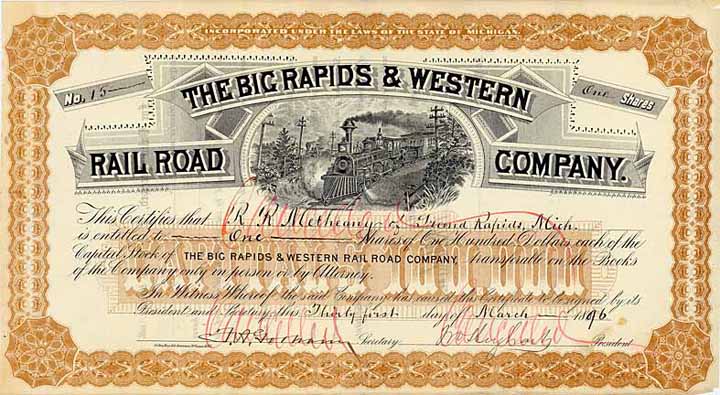 INCORPORATED UNDER THE LAWS OF THE STATE OF MICHIGAN.
No. 15
One Shares
THE BIG RAPIDS & WESTERN
RAIL ROAD COMPANY.
This Certifies that R R Metheany of Grand Rapids, Mich.
is entitled to One Shares of One Hundred Dollars each of the
Capital Stock of THE BIG RAPIDS & WESTERN RAIL ROAD COMPANY, transferable on the Books
of the Company only in person or by Attorney.
In Witness Whereof the said Company has caused this Certificate to be signed by its
President and Secretary this Thirty first day of March 1896
Secretary. President
Cancelled
Cancelled
Cancelled